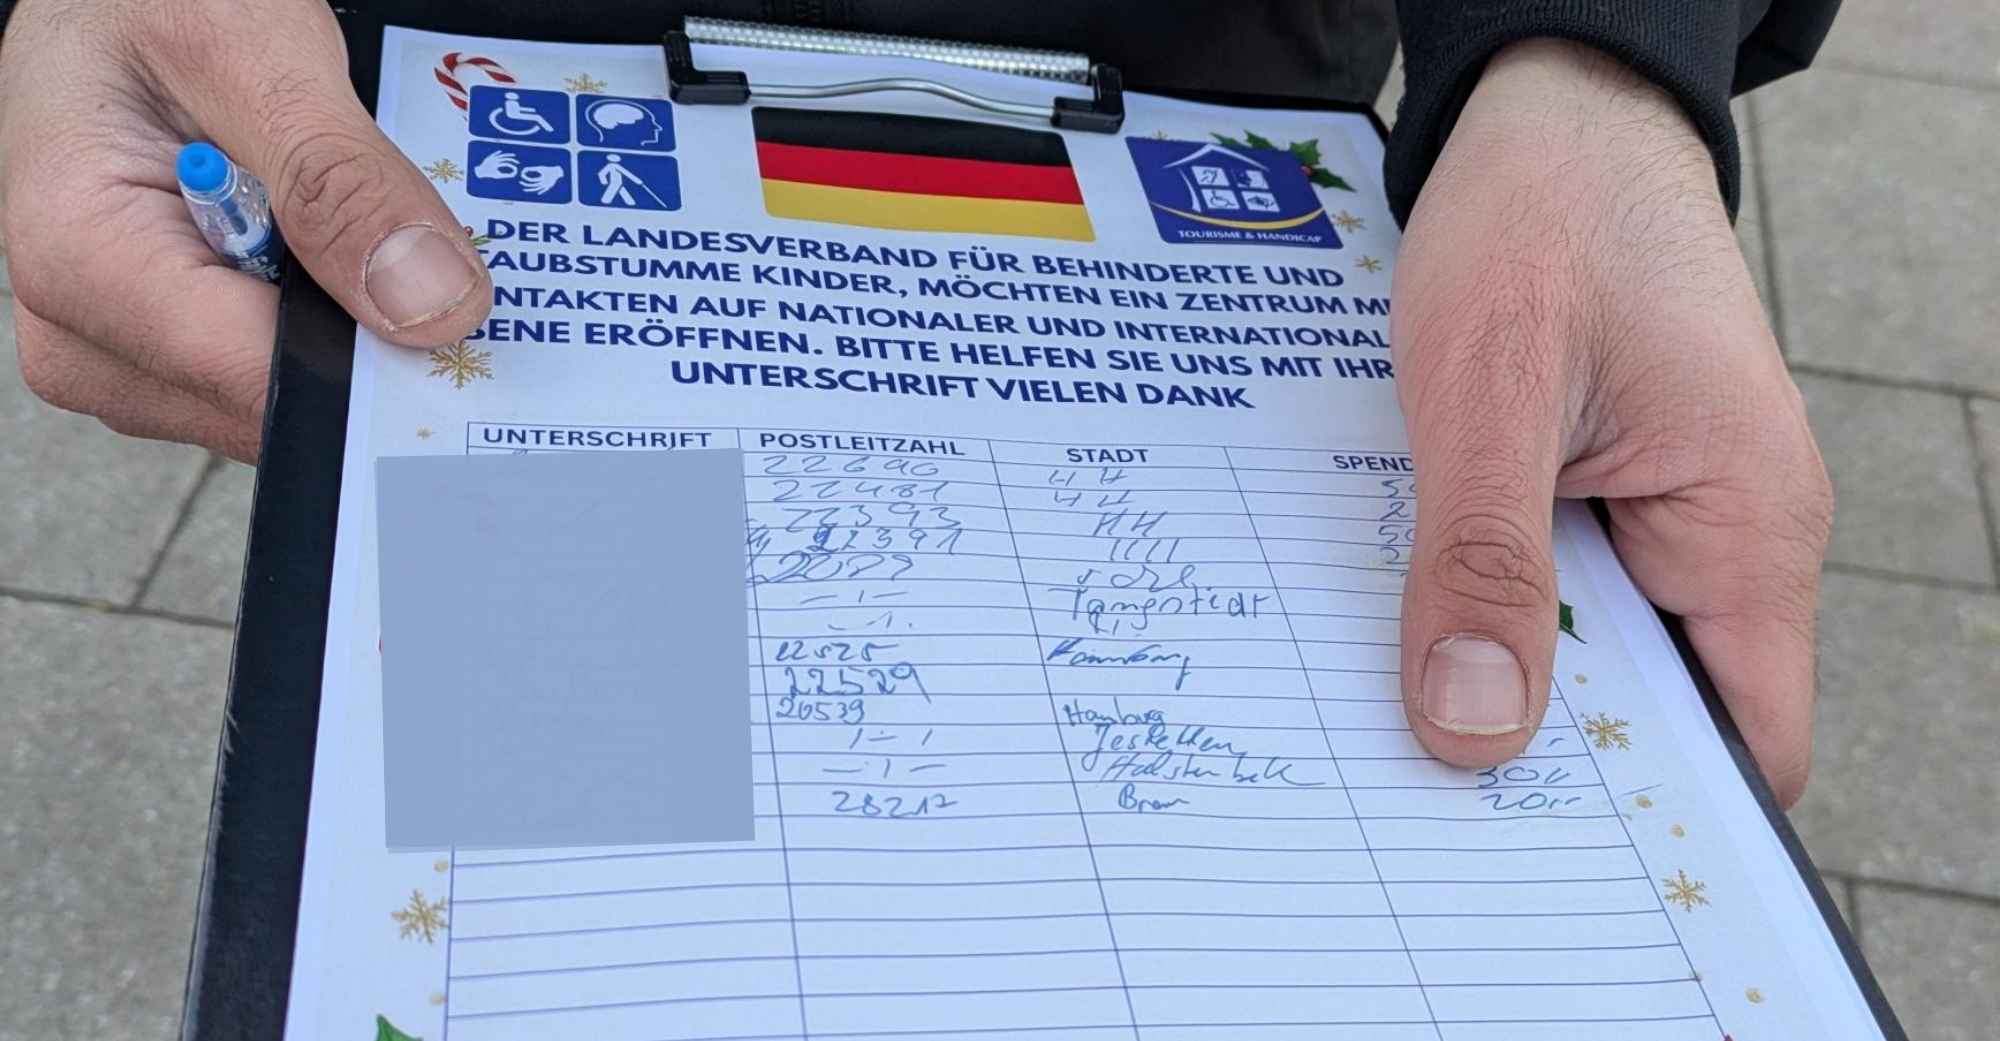 TOURISME & HANDICAP
DER LANDESVERBAND FÜR BEHINDERTE UND
AUBSTUMME KINDER, MÖCHTEN EIN ZENTRUM MI
NTAKTEN AUF NATIONALER UND INTERNATIONAL
BENE ERÖFFNEN. BITTE HELFEN SIE UNS MIT IHR
UNTERSCHRIFT VIELEN DANK
UNTERSCHRIFT POSTLEITZAHL STADT SPEND
HH
22481 HH
22393 HH
22391
Tangstedt
22525 Hamburg
22529
20539 Hamburg
Jestetten
Halstenbek 30
28217 20